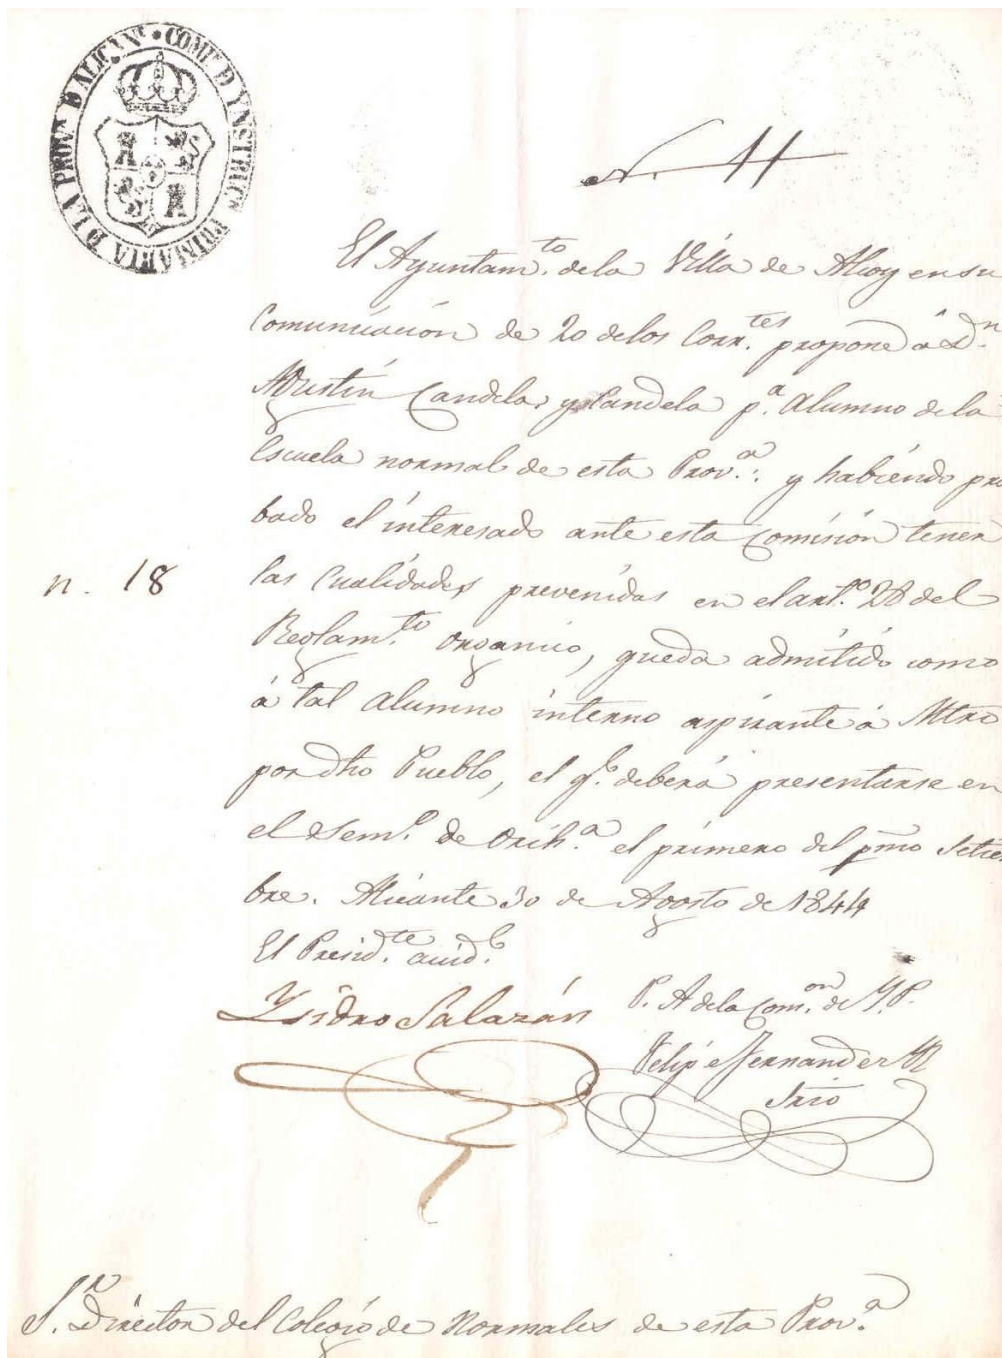 COMN. D YNSTRCN. PRIMARIA D LA PROVA. D ALICANE.
N. 11
El Ayuntamto. dela Villa de Alcoy en su
Comunicacion de 20 delos Corrtes. propone á Dn.
Agustin Candela, y Candela pa. Alumno dela
Escuela normal de esta Prova.: y habiendo pro
bado el interesado ante esta Comision tener
n. 18
las Cualidades prevenidas en el arto. 28 del
Reglamto. organico, queda admitido como
á tal Alumno interno aspirante á Mtro
por dho Pueblo, el ql. deberá presentarse en
el Semo. de Oriha. el primero del pmo Setiem
bre. Alicante 30 de Agosto de 1844
El Presidte. accidl.
Ysidro Salazán
P. A dela Comon. de Y. P.
Felipe Fernandez
Srio
Sr. Director del Colegio de Normales de esta Prova.